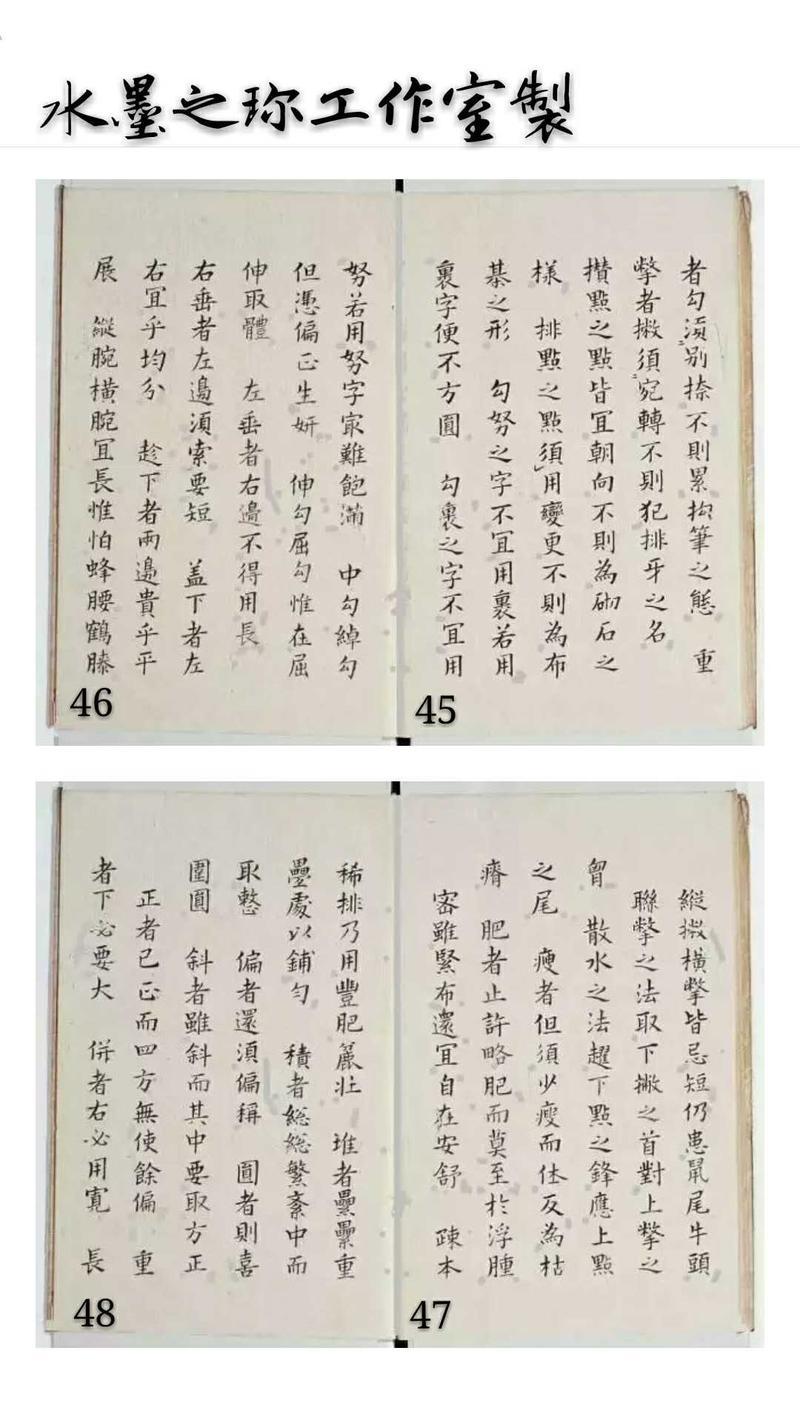 水墨之珎工作室製
者勾須別捺不則累拘筆之態　重
撆者撇須宛轉不則犯排牙之名
攢點之點皆宜朝向不則為砌石之
樣　排點之點須用變更不則為布
棊之形　勾努之字不宜用裏若用
裏字便不方圓　勾裏之字不宜用
45
努若用努字㝡難飽滿　中勾綽勾
但憑偏正生妍　伸勾屈勾惟在屈
伸取體　左垂者右邊不得用長
右垂者左邊須索要短　盖下者左
右宜乎均分　趁下者兩邊貴乎平
展　縱腕橫腕宜長惟怕蜂腰鶴膝
46
縱撇橫撆皆忌短仍患鼠尾牛頭
聯撆之法取下撇之首對上撆之
胷　散水之法趯下點之鋒應上點
之尾　瘦者但須少瘦而体反為枯
瘠　肥者止許略肥而莫至於浮腫
密雖緊布還宜自在安舒　疎本
47
稀排乃用豐肥麄壯　堆者纍纍重
疊處以鋪勻　積者緫緫繁紊中而
取整　偏者還須偏稱　圓者則喜
圍圓　斜者雖斜而其中要取方正
正者已正而四方無使餘偏　重
者下必要大　併者右必用寬　長
48